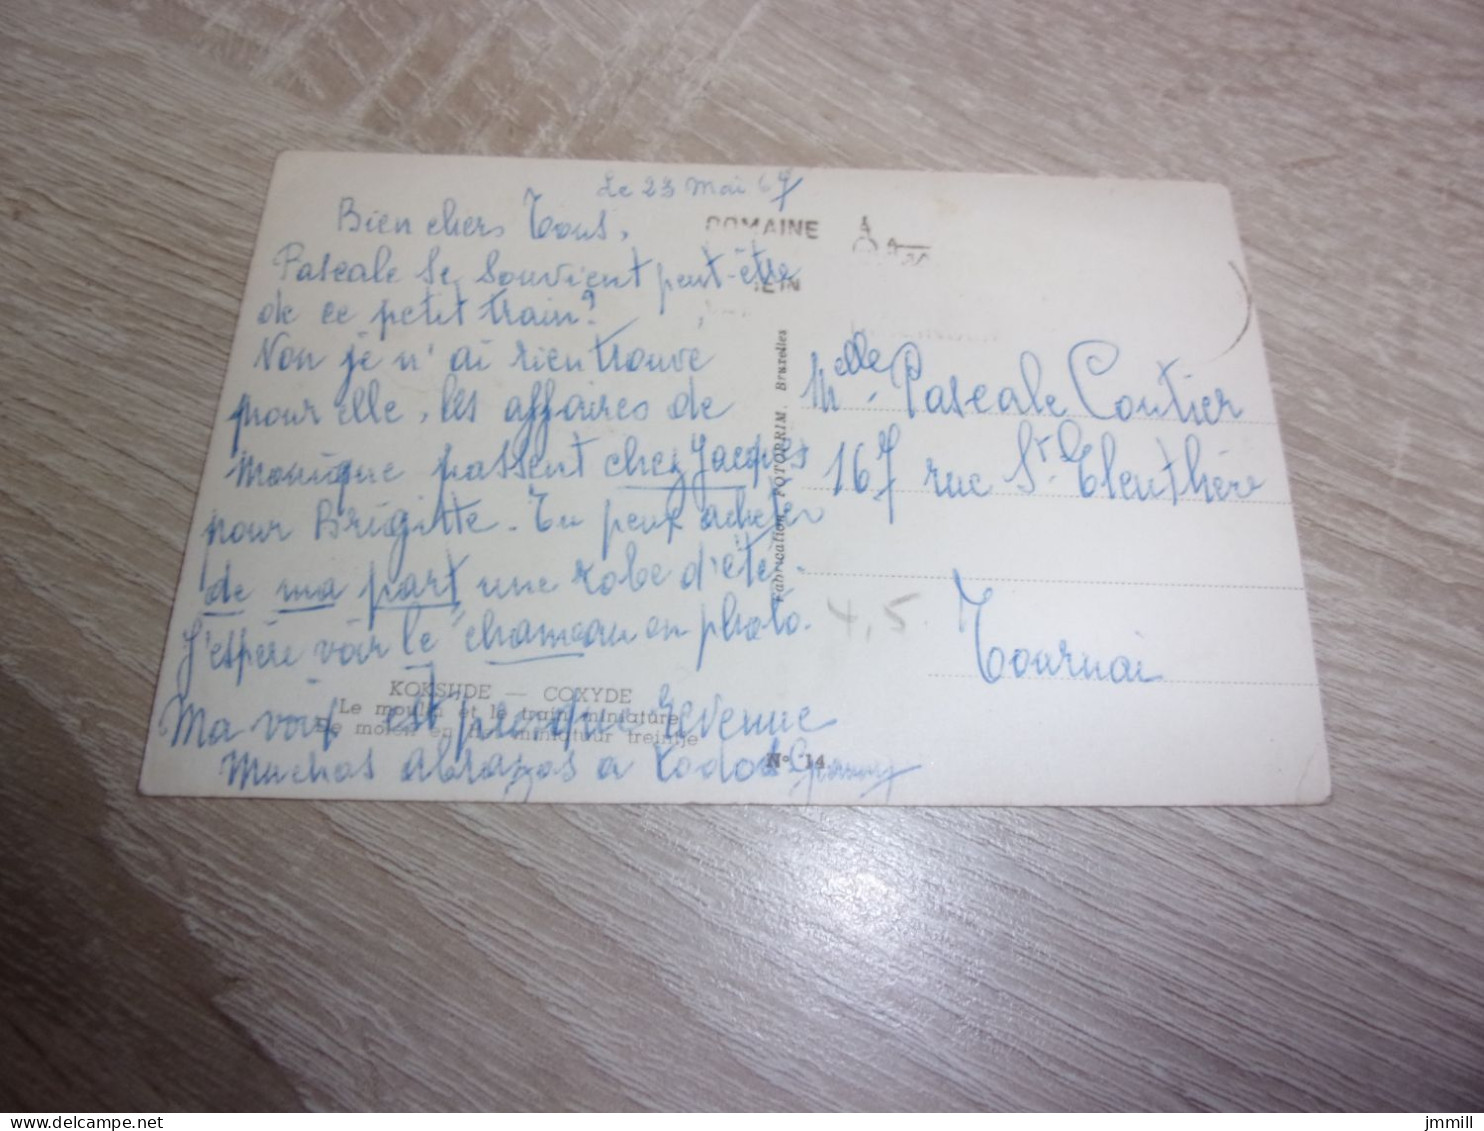 Le 23 Mai 67
Bien chers Tous,
DOMAINE
Pascale se souvient peut-être
de ce petit train?
Non je n'ai rien trouvé
pour elle, les affaires de
Monique passent chez Jacques
pour Brigitte. Tu peux acheter
de ma part une robe d'été.
J'espère voir le "chameau en photo.
Ma voix est presque revenue
Muchos abrazos a todos
KOKSIJDE — COXYDE
Le moulin et le train miniature
De molen en het miniatuur treintje
N° 14
Fabrication FOTOPRIM, Bruxelles
Melle Pascale Coutier
167 rue St. Eleuthère
Tournai
4,5.
jmmill